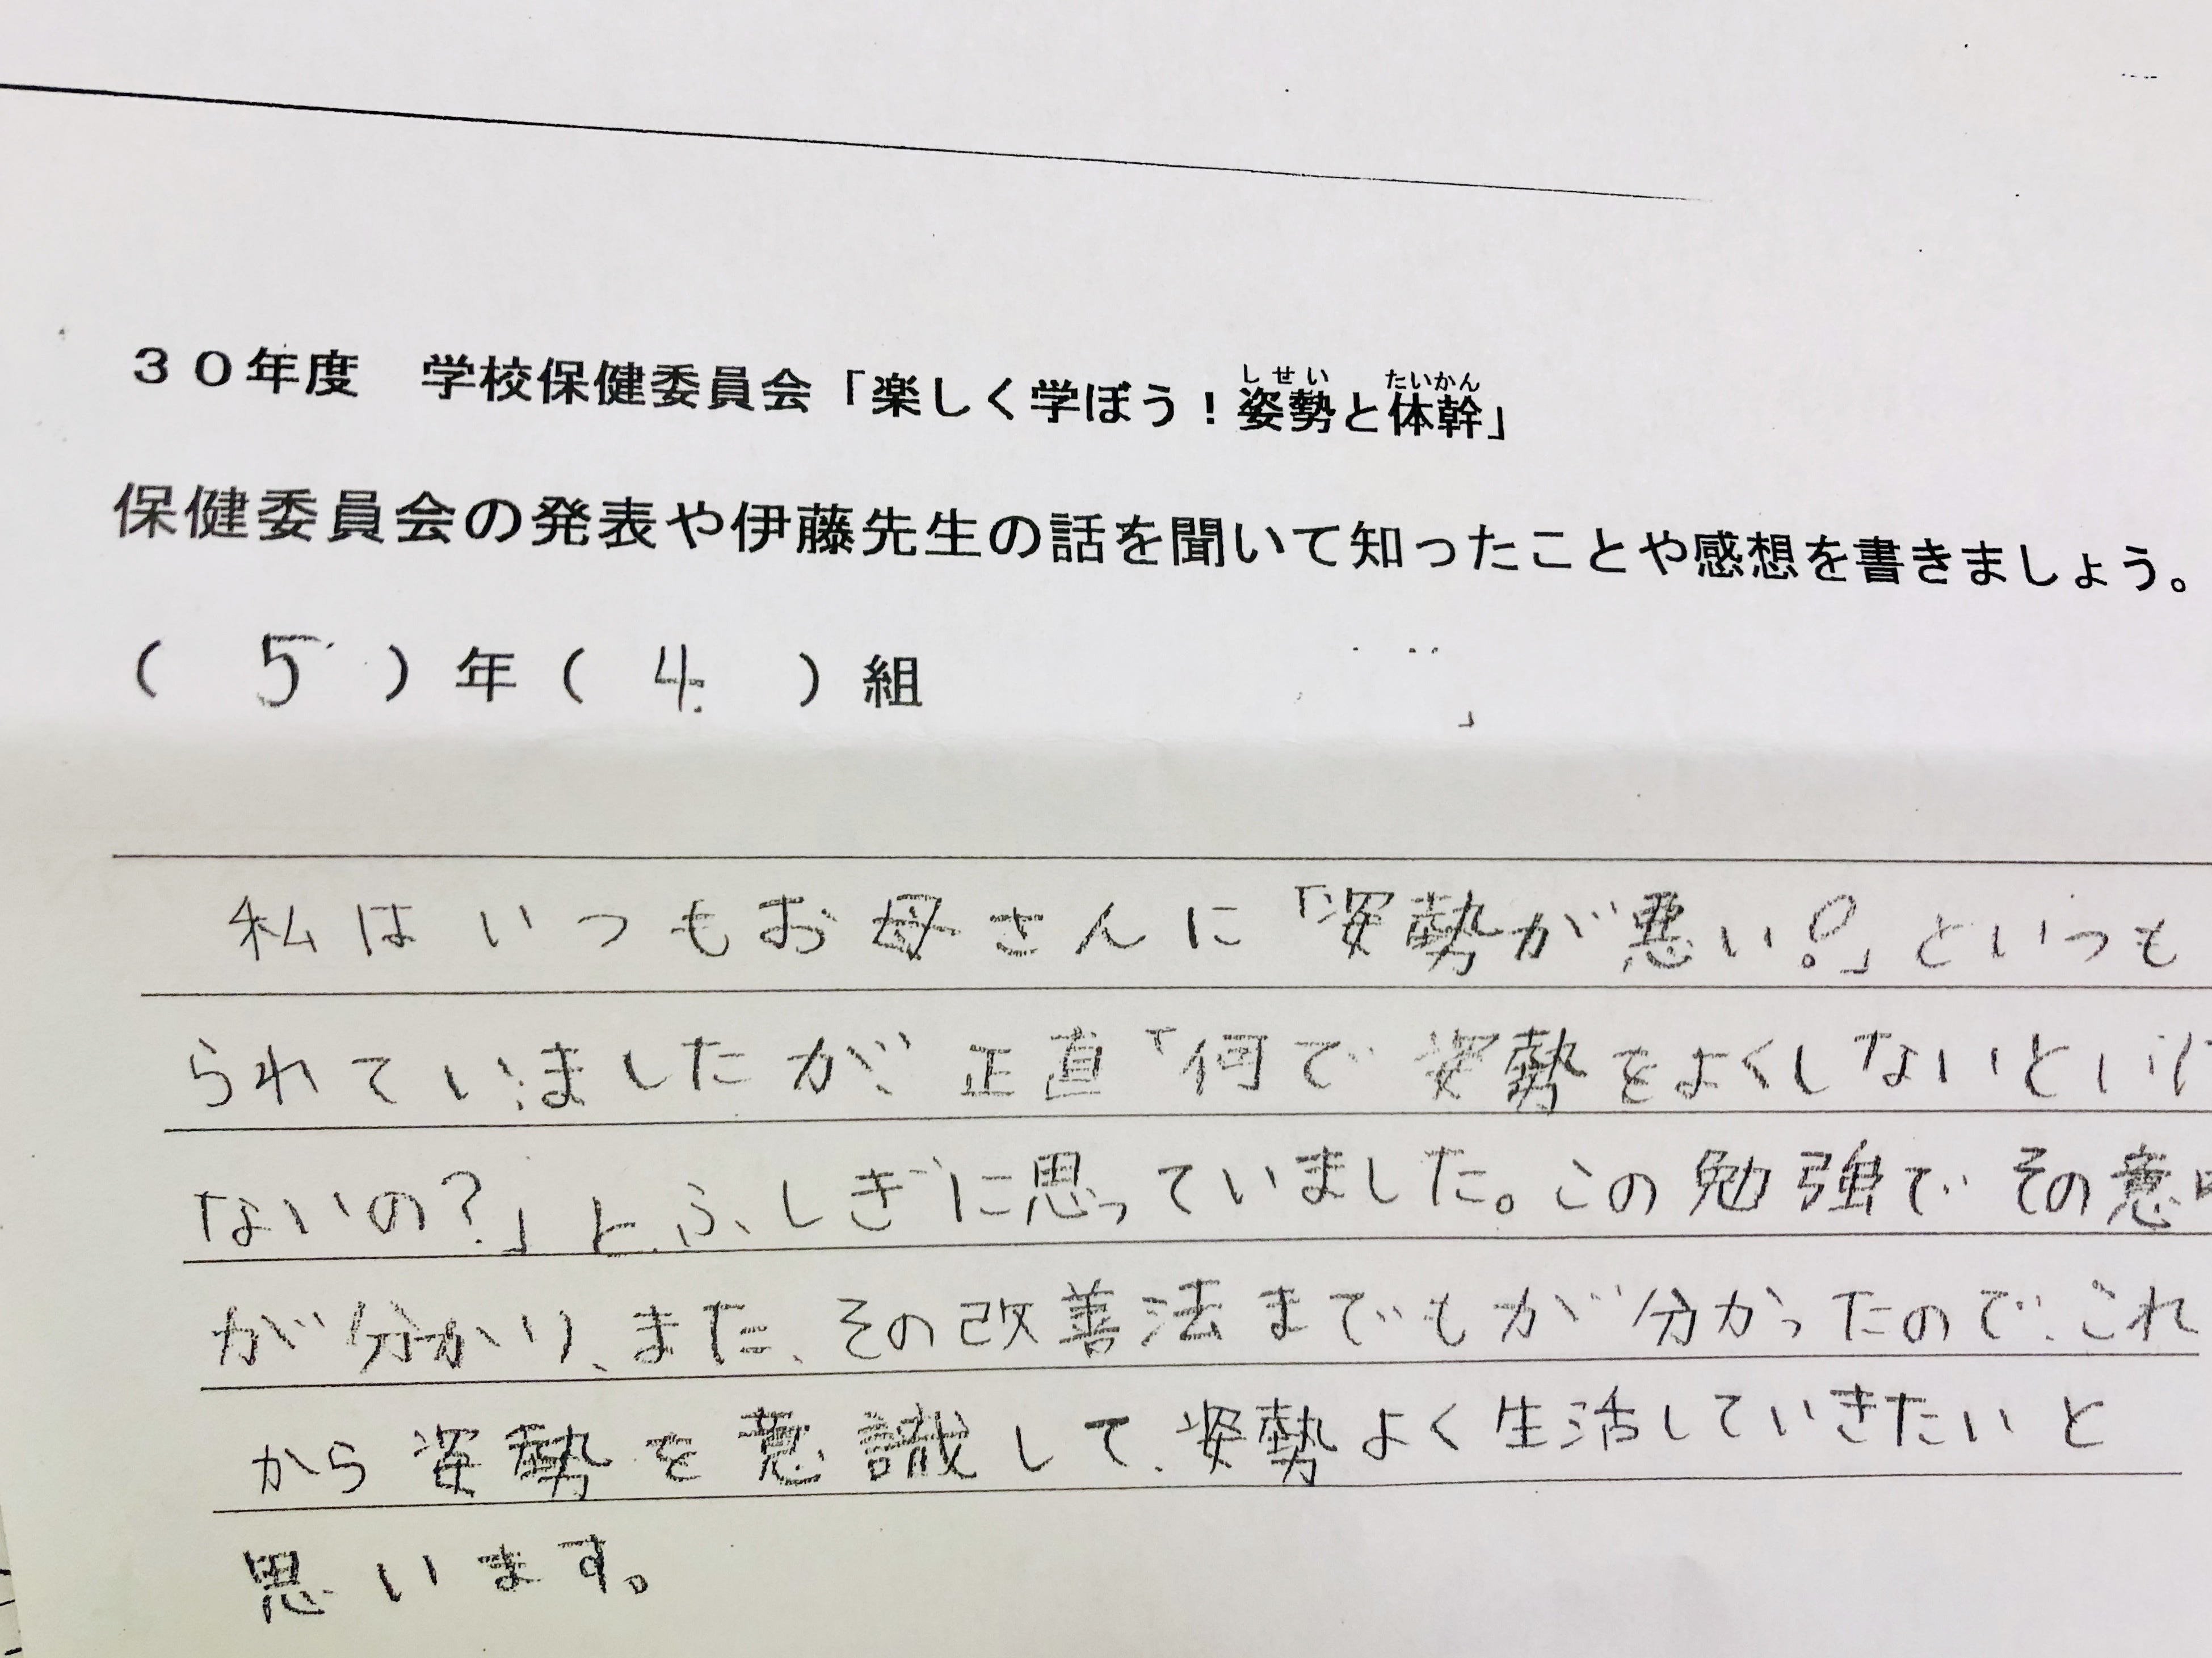 ３０年度　学校保健委員会「楽しく学ぼう！姿勢と体幹」
保健委員会の発表や伊藤先生の話を聞いて知ったことや感想を書きましょう。
（　5　）年（　4　）組
私はいつもお母さんに「姿勢が悪い！」といつも
られていましたが、正直「何で姿勢をよくしないといけ
ないの？」とふしぎに思っていました。この勉強でその意味
が分かり、また、その改善法までもが分かったので、これ
から姿勢を意識して、姿勢よく生活していきたいと
思います。